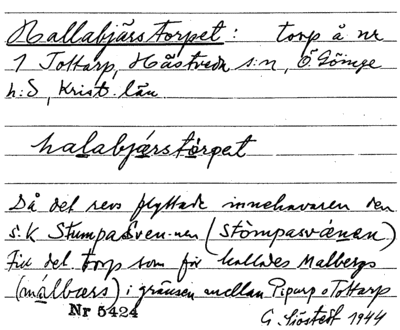 Hallabjärstorpet: torp å nr
1 Tottarp, Hästveda s:n, Ö. Göinge
h:d, Krist. län
halabjárstòrpet
Då det revs flyttade innehavaren den
s.k Stumpa Sven-nen (stòmpasvænan)
Till det torp som för kallades Malbergs
(málbærs) i gränsen mellan Pipurp o Tottarp
Nr 5424
G. Sjöstedt 1944